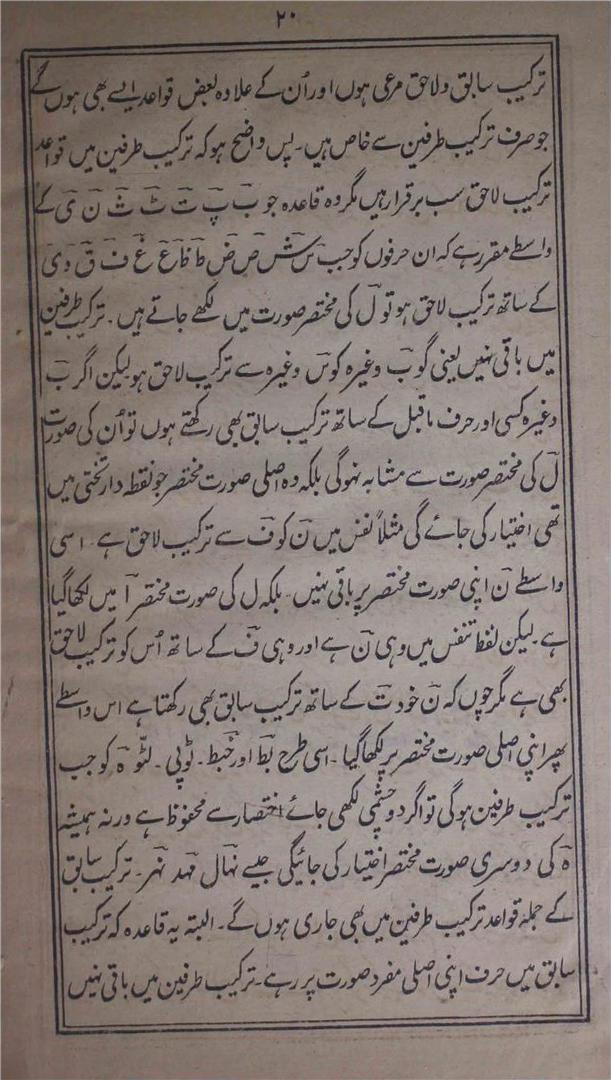 ۲۰
ترکیب سابق ولاحق مرعی ہوں اور اُن کے علاوہ بعض قواعد ایسے بھی ہوں گے
جو صرف ترکیب طرفین سے خاص ہیں۔ پس واضح ہو کہ ترکیب طرفین میں قواعد
ترکیب لاحق سب برقرار ہیں مگر وہ قاعدہ جو ب پ ت ٹ ث ن ی کے
واسطے مقرر ہے کہ ان حرفوں کو جب س ش ص ض ط ظ ع غ ف ق و ی
کے ساتھ ترکیب لاحق ہو تو ل کی مختصر صورت میں لکھے جاتے ہیں۔ ترکیب طرفین
میں باقی نہیں یعنی گو ب وغیرہ کو س وغیرہ سے ترکیب لاحق ہو لیکن اگر ب
وغیرہ کسی اور حرف ماقبل کے ساتھ ترکیب سابق بھی رکھتے ہوں تو اُن کی صورت
ل کی مختصر صورت سے مشابہ نہوگی بلکہ وہ اصلی صورت مختصر جو نقطہ دار تختی میں
تھی اختیار کی جائے گی مثلاً نفس میں ن کو ف سے ترکیب لاحق ہے۔ اسی
واسطے ن اپنی صورت مختصر پر باقی نہیں۔ بلکہ ل کی صورت مختصر ا میں لکھا گیا
ہے۔ لیکن لفظ تنفس میں وہی ن ہے اور وہی ف کے ساتھ اُس کو ترکیب لاحق
بھی ہے مگر چوں کہ ن خود ت کے ساتھ ترکیب سابق بھی رکھتا ہے اس واسطے
پھر اپنی اصلی صورت مختصر پر لکھا گیا۔ اسی طرح بط اور خبط۔ ٹوپی۔ لٹّو ہ کو جب
ترکیب طرفین ہوگی تو اگر دوچشمی لکھی جائے اختصار سے محفوظ ہے ورنہ ہمیشہ
ہ کی دوسری صورت مختصر اختیار کی جائیگی جیسے نہال مہد نہر۔ ترکیب سابق
کے جملہ قواعد ترکیب طرفین میں بھی جاری ہوں گے۔ البتہ یہ قاعدہ کہ ترکیب
سابق میں حرف اپنی اصلی مفرد صورت پر رہے۔ ترکیب طرفین میں باقی نہیں